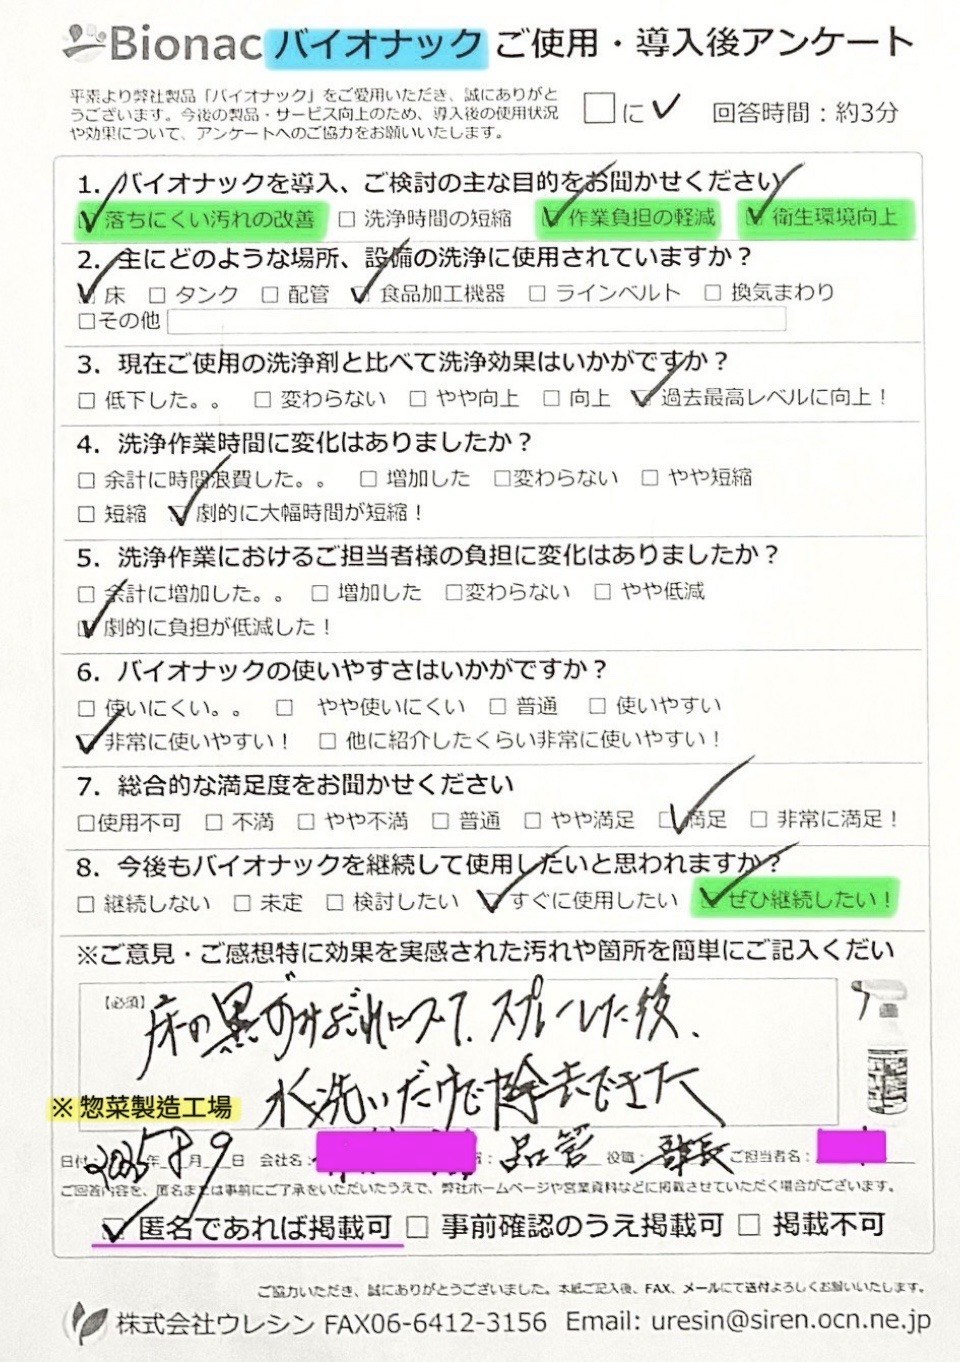 Bionac バイオナック ご使用・導入後アンケート
平素より弊社製品「バイオナック」をご愛用いただき、誠にありがと
うございます。今後の製品・サービス向上のため、導入後の使用状況
や効果について、アンケートへのご協力をお願いいたします。
□に✓ 回答時間：約3分
1. バイオナックを導入、ご検討の主な目的をお聞かせください
☑ 落ちにくい汚れの改善 □ 洗浄時間の短縮 ☑ 作業負担の軽減 ☑ 衛生環境向上
2. 主にどのような場所、設備の洗浄に使用されていますか？
☑ 床 □ タンク □ 配管 ☑ 食品加工機器 □ ラインベルト □ 換気まわり
□その他
3. 現在ご使用の洗浄剤と比べて洗浄効果はいかがですか？
□ 低下した。。 □ 変わらない □ やや向上 □ 向上 ☑ 過去最高レベルに向上！
4. 洗浄作業時間に変化はありましたか？
□ 余計に時間浪費した。。 □ 増加した □変わらない □ やや短縮
□ 短縮 ☑ 劇的に大幅時間が短縮！
5. 洗浄作業におけるご担当者様の負担に変化はありましたか？
□ 余計に増加した。。 □ 増加した □変わらない □ やや低減
☑ 劇的に負担が低減した！
6. バイオナックの使いやすさはいかがですか？
□ 使いにくい。。 □ やや使いにくい □ 普通 □ 使いやすい
☑ 非常に使いやすい！ □ 他に紹介したくらい非常に使いやすい！
7. 総合的な満足度をお聞かせください
□使用不可 □ 不満 □ やや不満 □ 普通 □ やや満足 ☑ 満足 □ 非常に満足！
8. 今後もバイオナックを継続して使用したいと思われますか？
□ 継続しない □ 未定 □ 検討したい ☑ すぐに使用したい ☑ ぜひ継続したい！
※ご意見・ご感想特に効果を実感された汚れや箇所を簡単にご記入くだい
【必須】
床の黒ずみよごれについて、スプレーした後、
水洗いだけで除去できた
※ 惣菜製造工場
日付: 2025年 8月 9日 会社名: 品管 役職: 部長 ご担当者名:
ご回答内容を、匿名または事前にご了承をいただいたうえで、弊社ホームページや営業資料などに掲載させていただく場合がございます。
☑ 匿名であれば掲載可 □ 事前確認のうえ掲載可 □ 掲載不可
ご協力いただき、誠にありがとうございました。本紙ご記入後、FAX、メールにて送付よろしくお願いいたします。
株式会社ウレシン FAX06-6412-3156 Email: uresin@siren.ocn.ne.jp